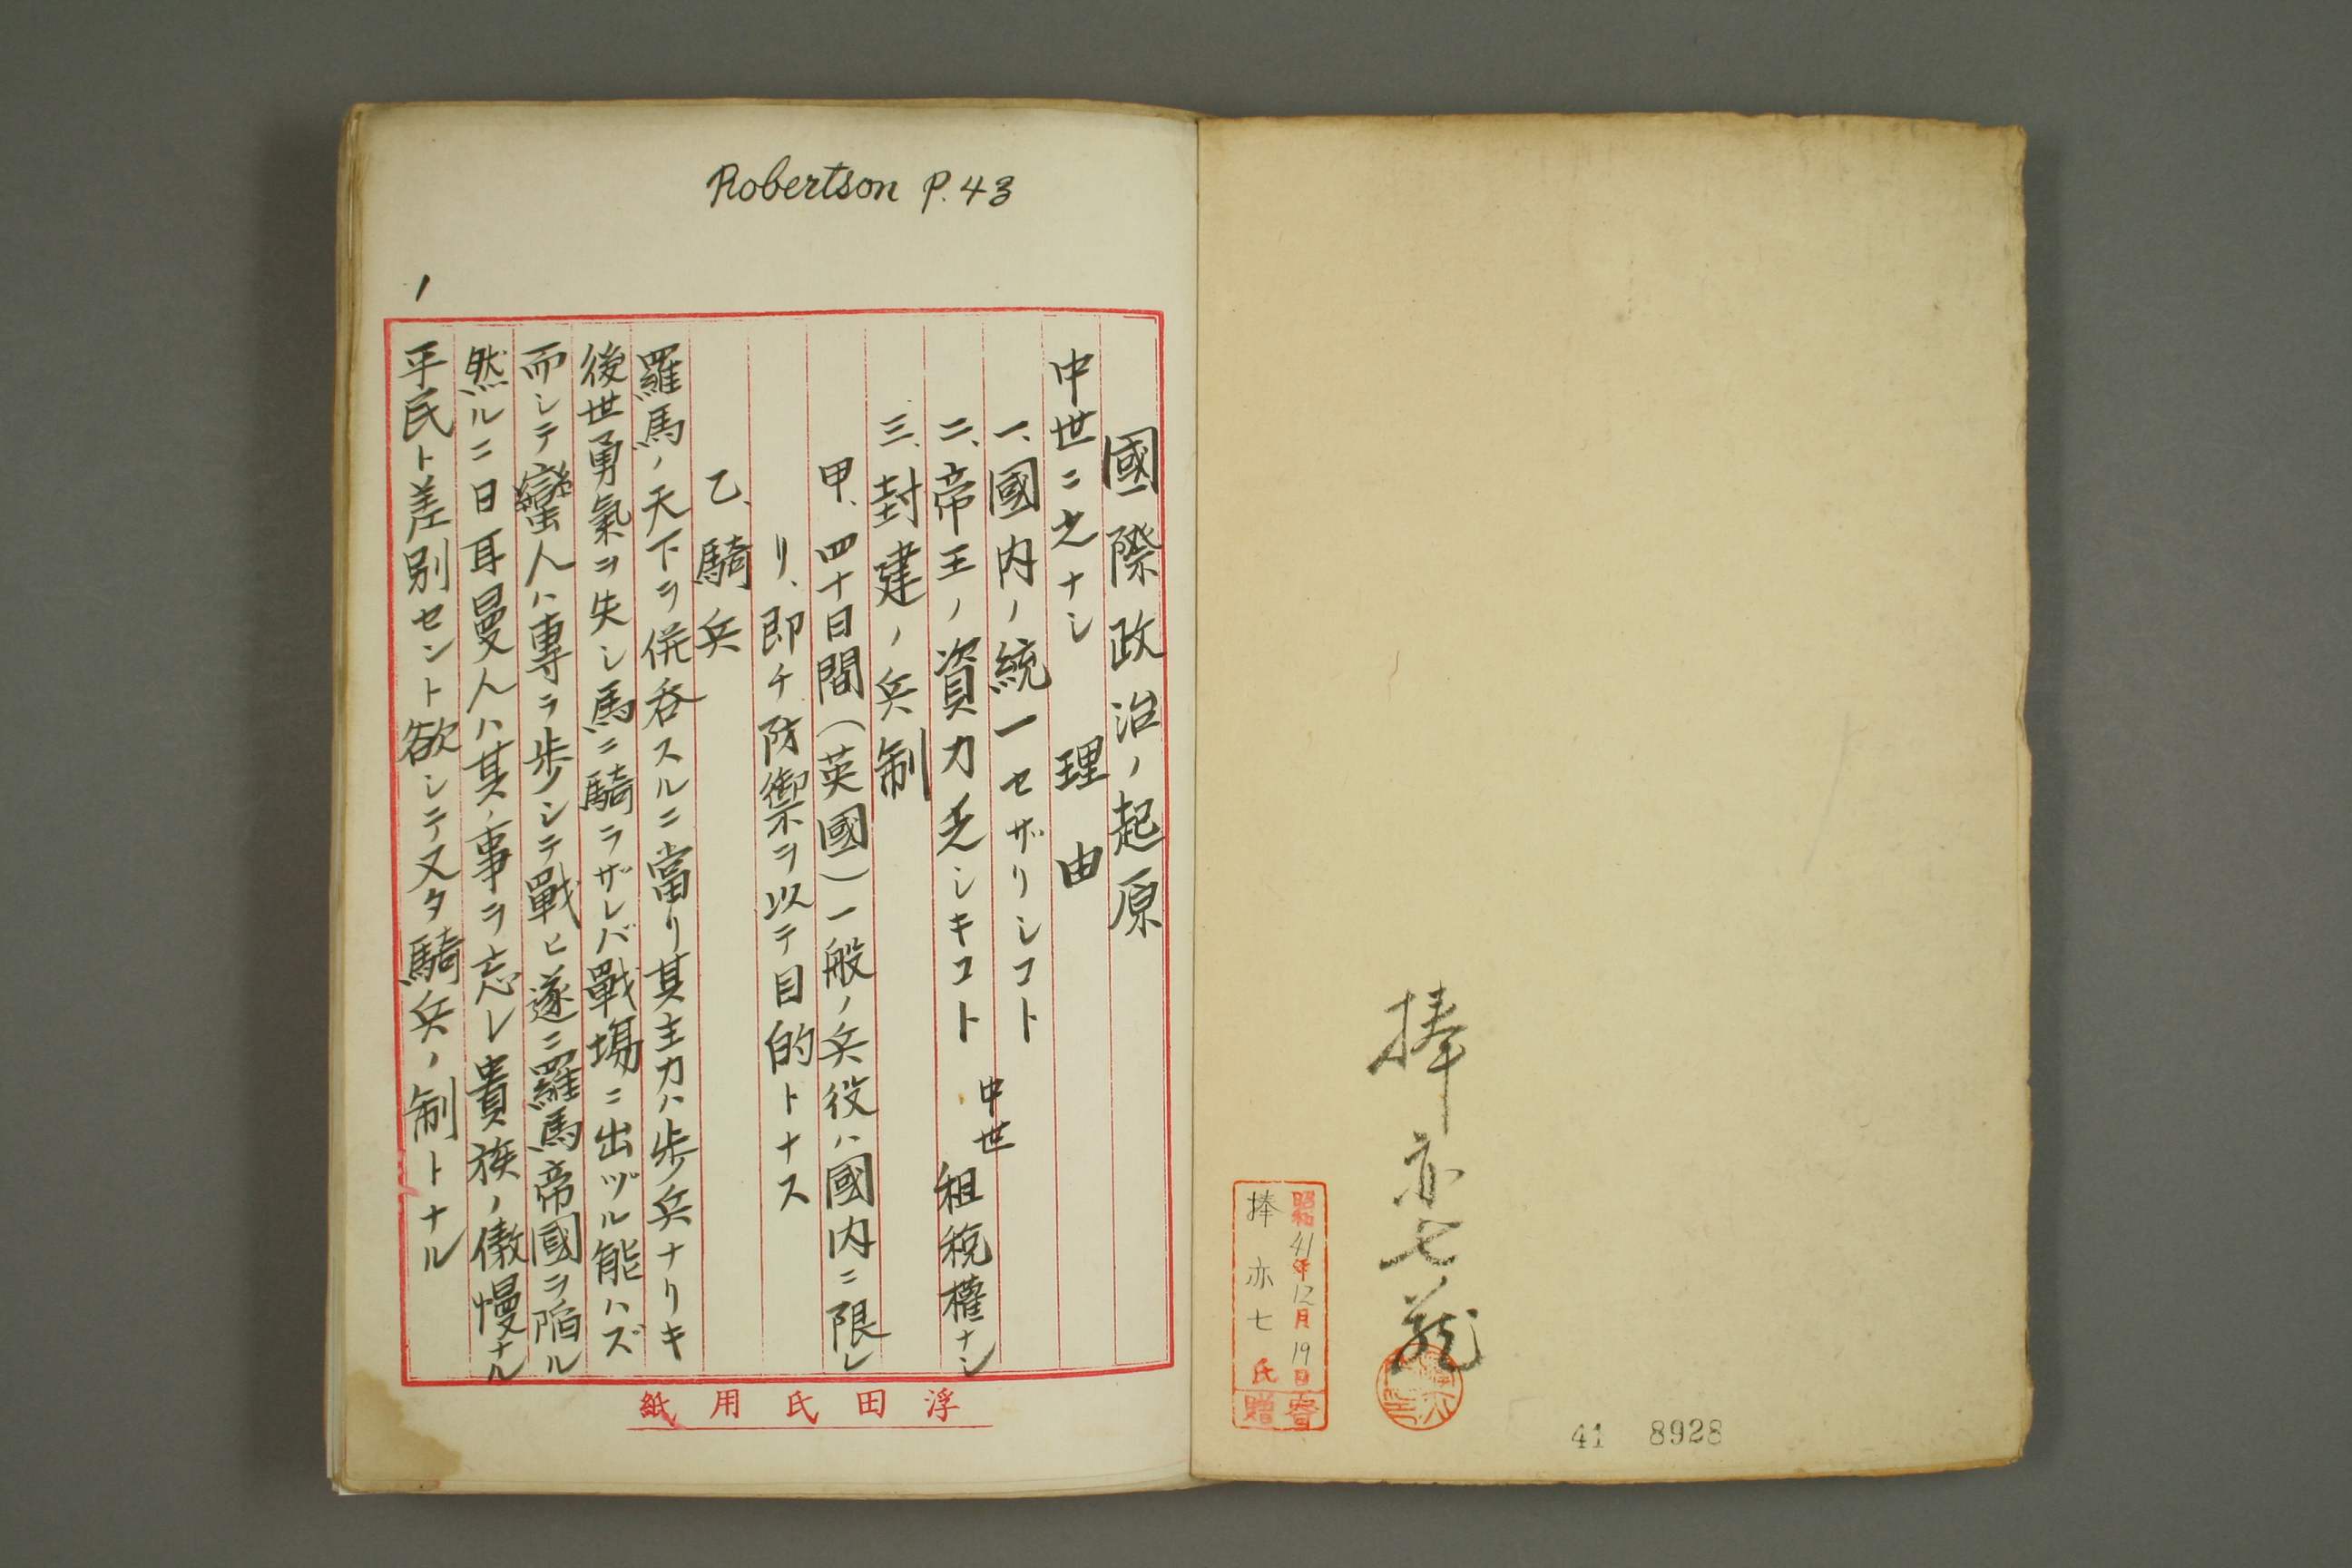 捧亦七蔵
昭和41年12月19日
捧亦七氏
寄贈
41 8928
Robertson P. 43
1
國際政治ノ起原
中世ニ之ナシ 理由
一、國内ノ統一セザリシコト
二、帝王ノ資力乏シキコト 中世租税權ナシ
三、封建ノ兵制
甲、四十日間(英國)一般ノ兵役ハ國内ニ限レ
リ、即チ防禦ヲ以テ目的トナス
乙、騎兵
羅馬ノ天下ヲ併呑スルニ當リ其主力ハ歩兵ナリキ
後世勇氣ヲ失シ馬ニ騎ラザレバ戰場ニ出ヅル能ハズ
而シテ蠻人ハ專ラ歩シテ戰ヒ遂ニ羅馬帝國ヲ陥ル
然ルニ日耳曼人ハ其ノ事ヲ忘レ貴族ノ傲慢ナル
平民ト差別セント欲シテ又タ騎兵ノ制トナル
浮田氏用紙